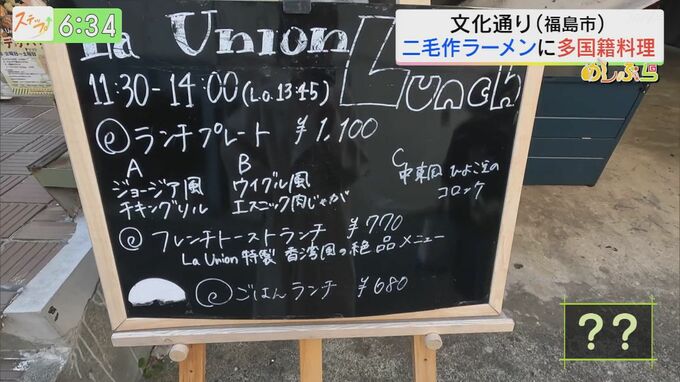 ステップ
6:34
文化通り（福島市）
二毛作ラーメンに多国籍料理
めしぶら
La Union
Lunch
11:30-14:00(L.O.13:45)
ランチプレート ¥1,100
A B C
ジョージア風 ウイグル風 中東風 ひよこ豆の
チキングリル エスニック肉じゃが コロッケ
フレンチトーストランチ ¥770
La Union 特製 香港風の絶品メニュー
ごはんランチ ¥680
??